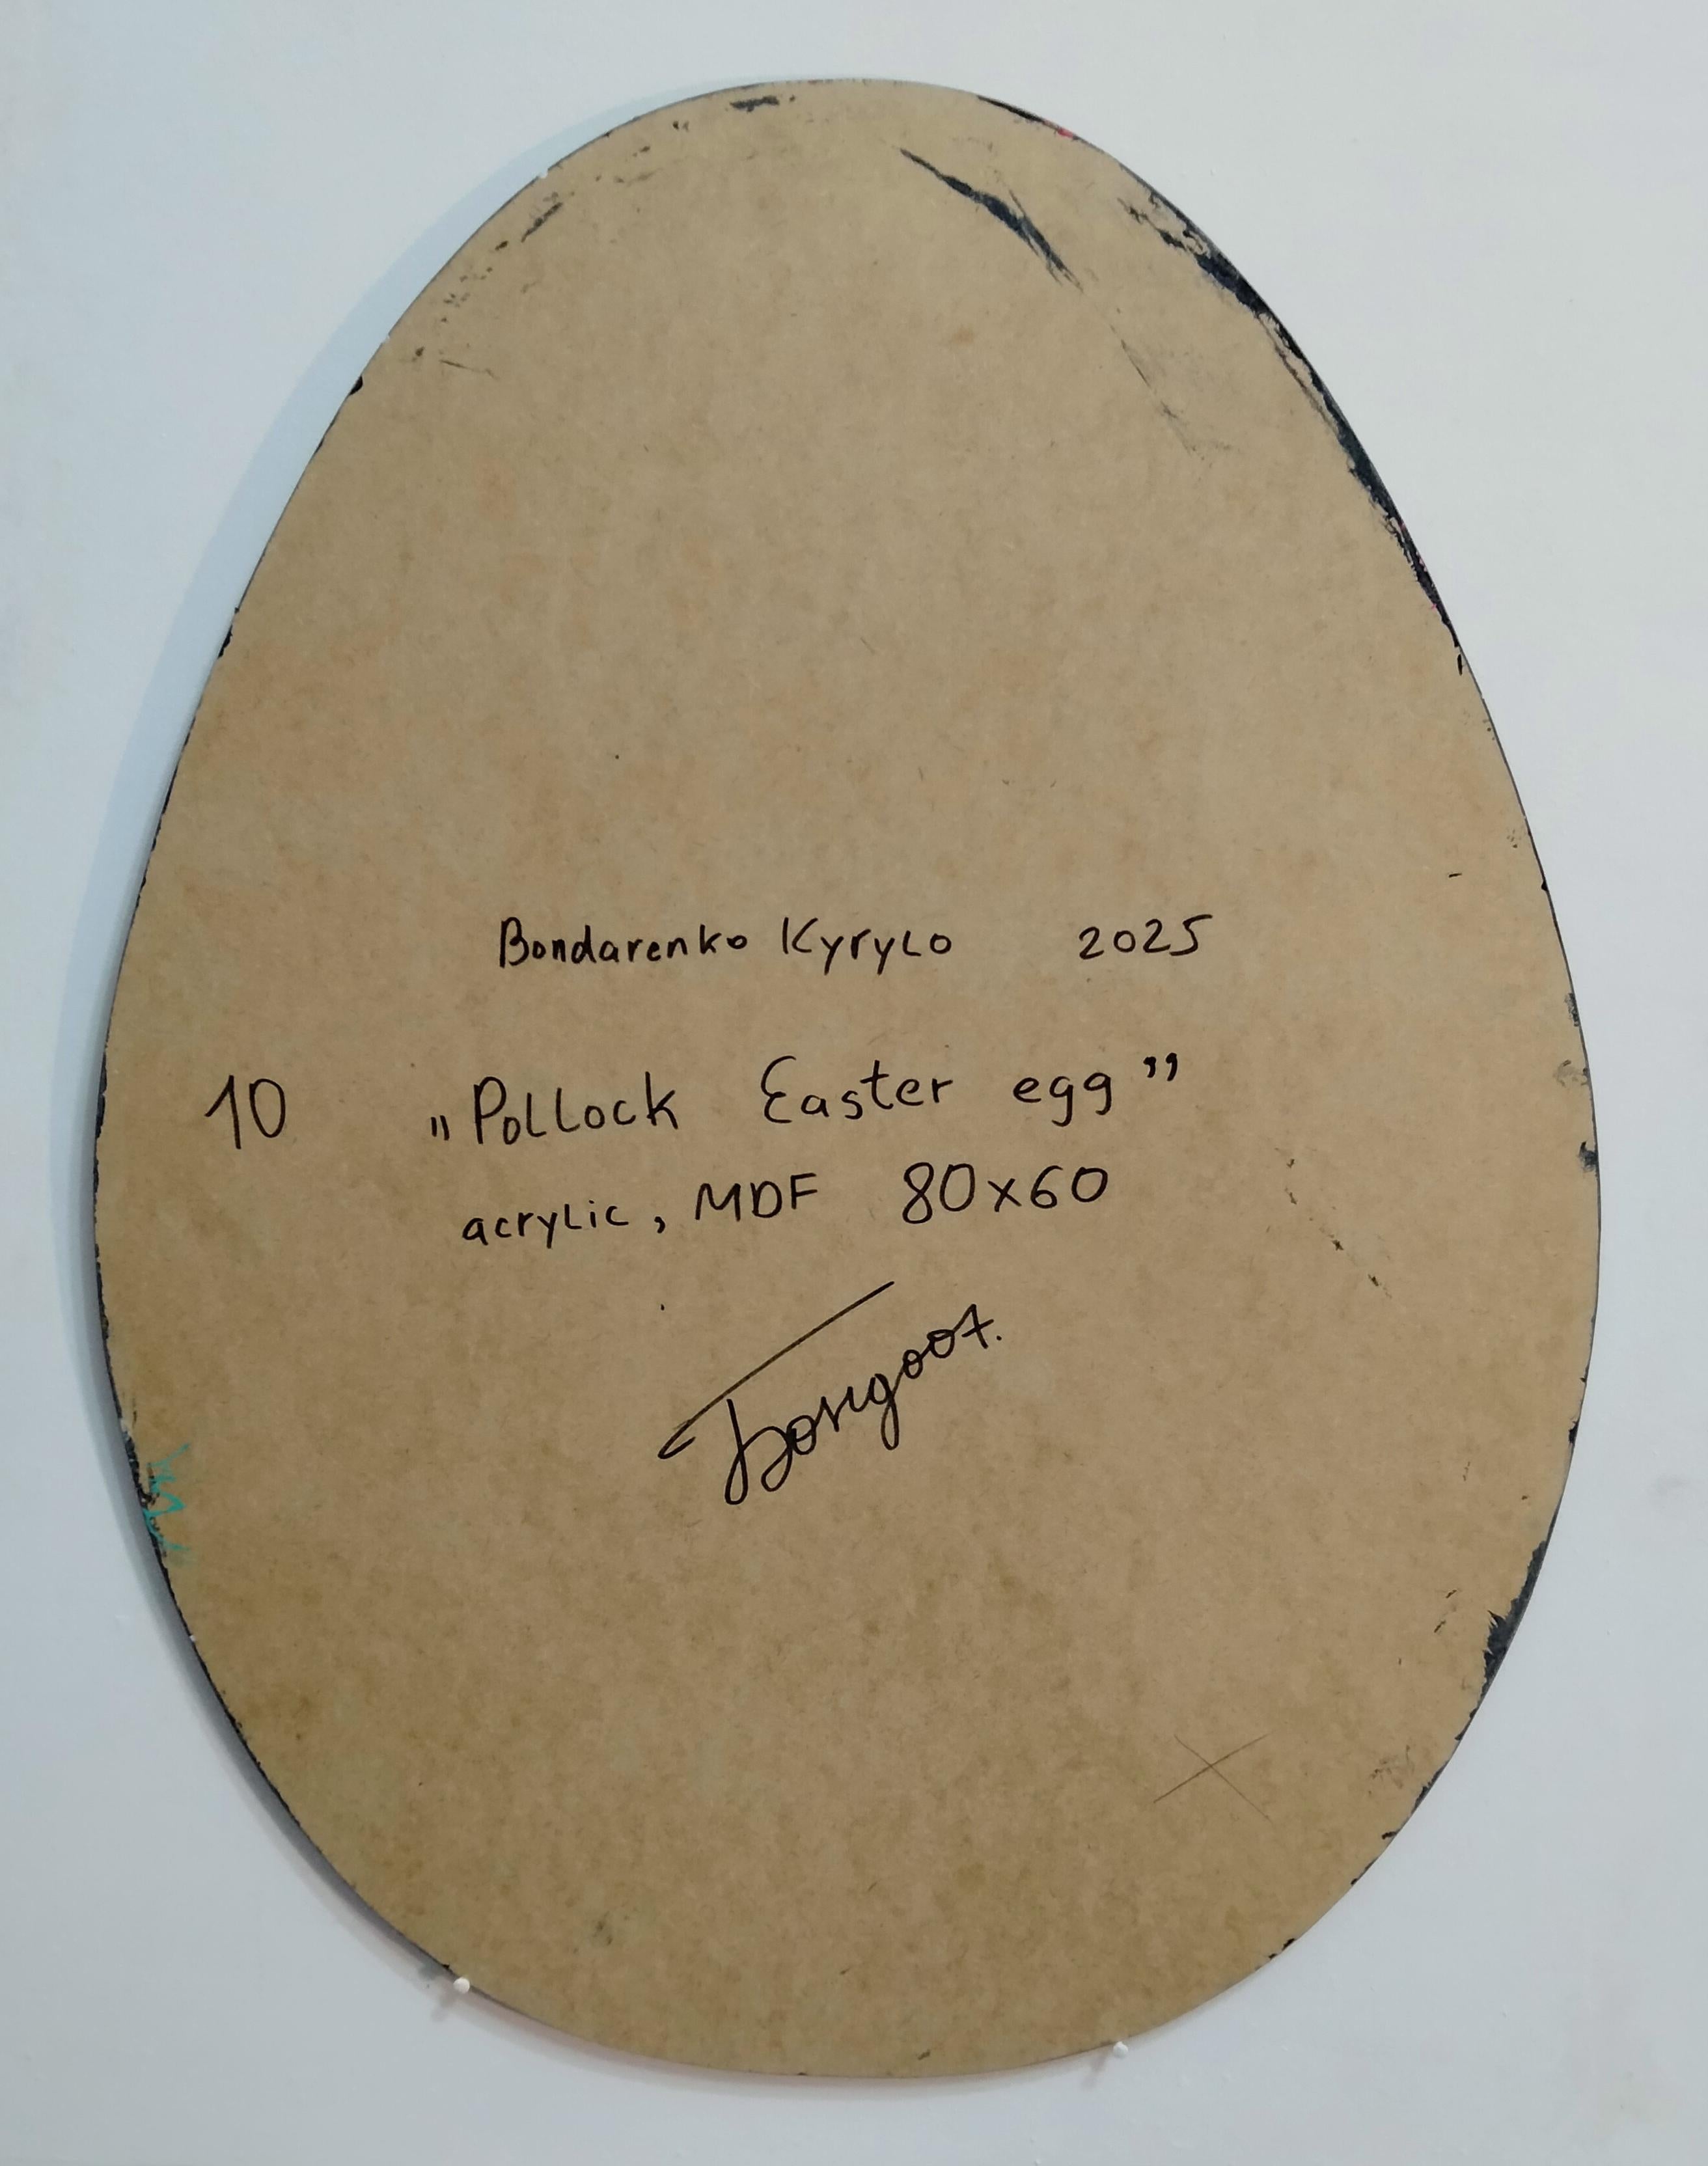 Bondarenko Kyrylo 2025
10 „Pollock Easter egg”
acrylic, MDF 80x60